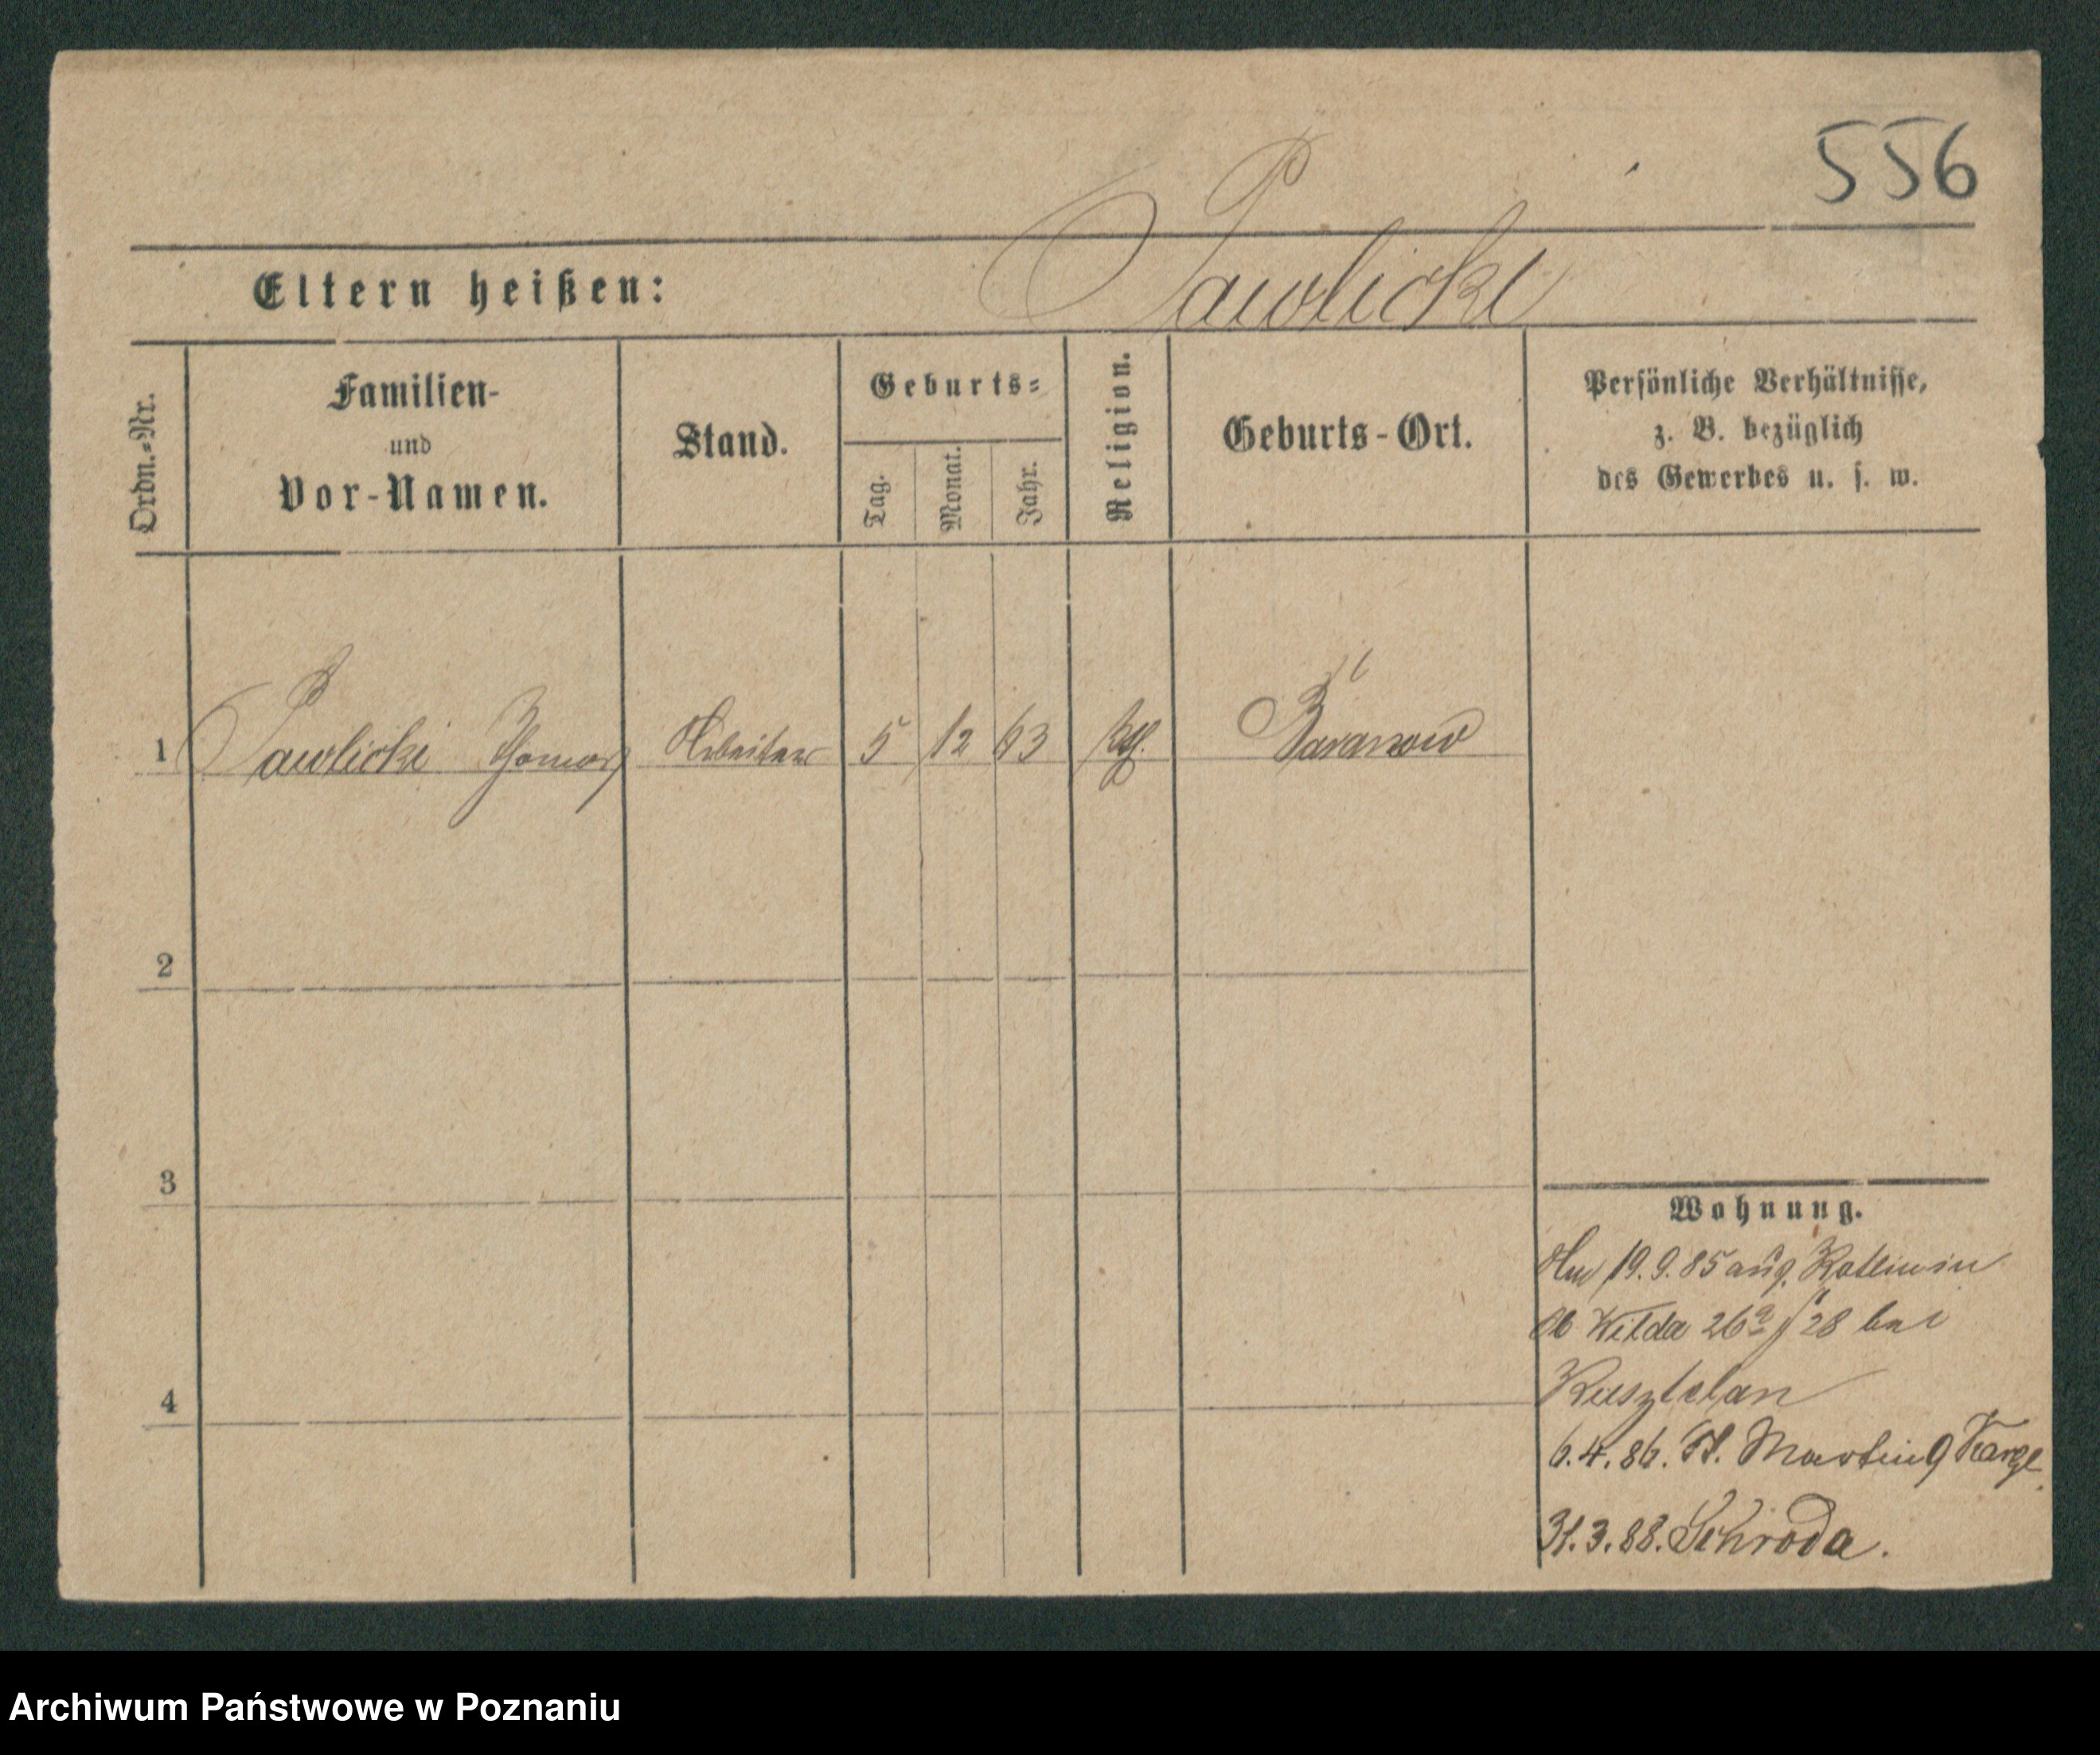 556
Eltern heißen: Pawlicki
Ordn.=Nr.
Familien-
und
Vor-Namen.
Stand.
Geburts=
Tag.
Monat.
Jahr.
Religion.
Geburts-Ort.
Persönliche Verhältnisse,
z. B. bezüglich
des Gewerbes u. s. w.
1 Pawlicki Thomas Arbeiter 5 12 63 kth. Baranow
2
3
4
Wohnung.
19.9.85 aus
Ob Wilda 26a 28 bei
Kusztelan
6.4.86. St. Martin 9
31.3.88. Schroda.
Archiwum Państwowe w Poznaniu